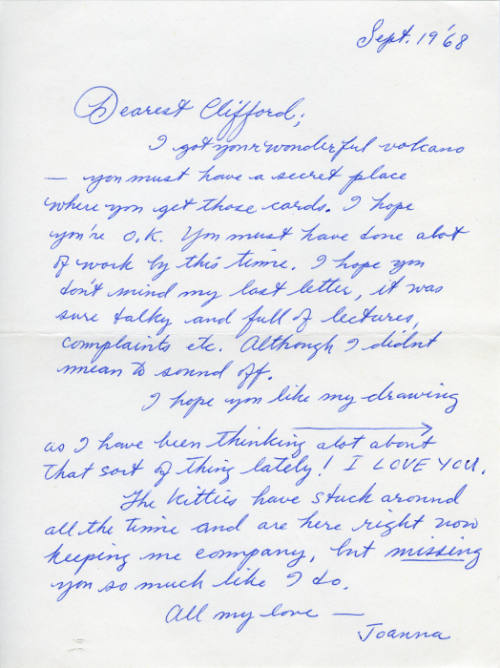 Sept. 19 '68
Dearest Clifford;
I got your wonderful volcano
— you must have a secret place
where you get those cards. I hope
you're O.K. You must have done alot
of work by this time. I hope you
don't mind my last letter, it was
sure talky and full of lectures,
complaints etc. Although I didn't
mean to sound off.
I hope you like my drawing
as I have been thinking alot about
that sort of thing lately! I LOVE YOU.
The kitties have stuck around
all the time and are here right now
keeping me company, but missing
you so much like I do.
All my love —
Joanna